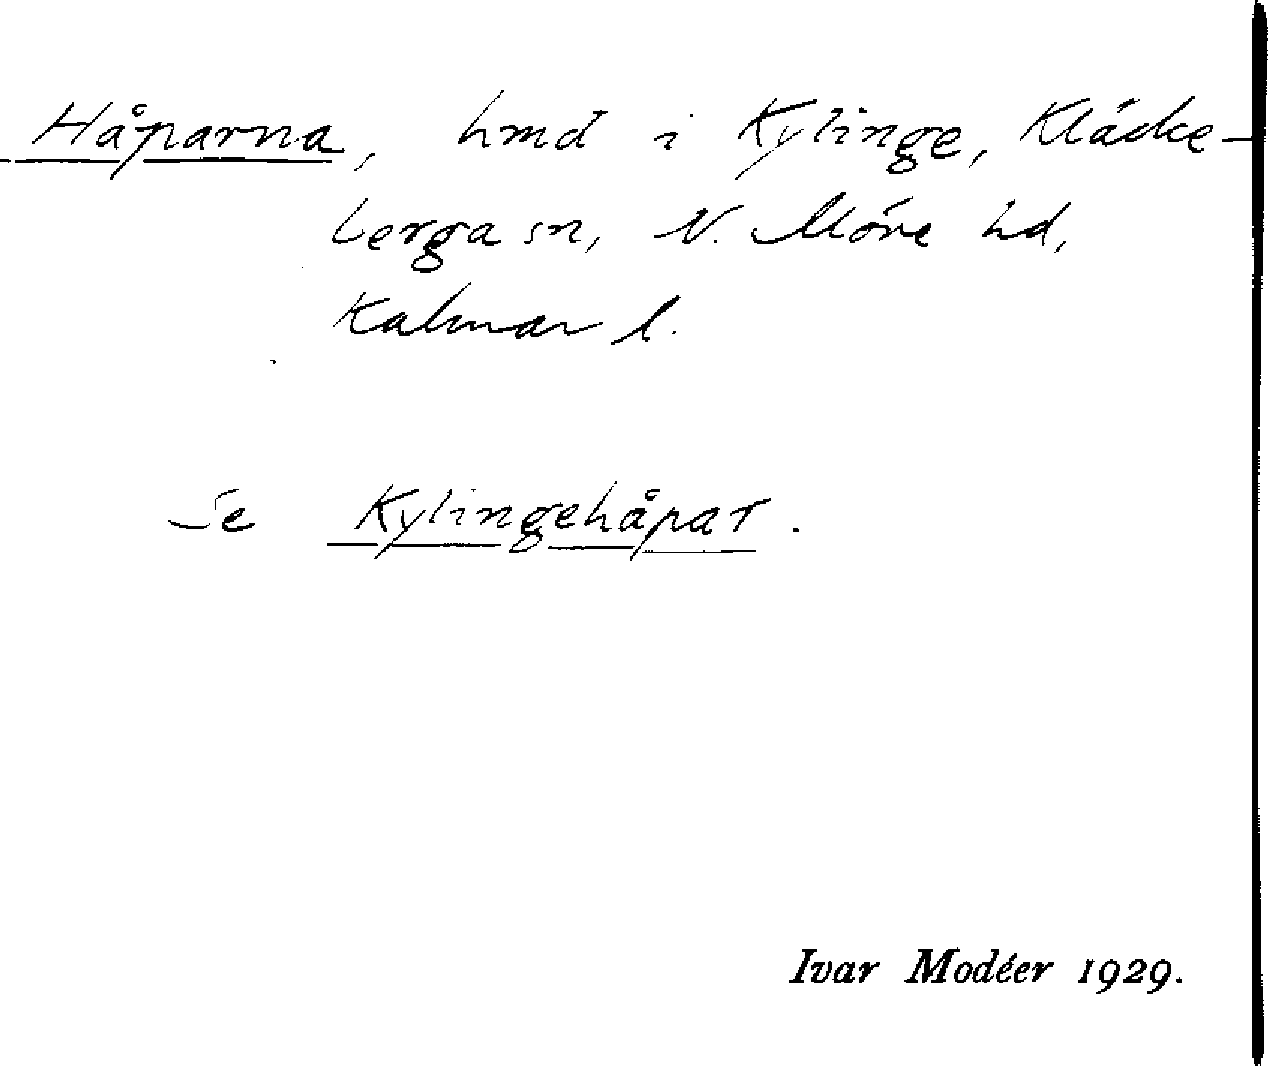 Håparna, hmd i Kylinge, Kläcke-
berga sn, N. Möre hd,
Kalmar l.
Se Kylingehåpar.
Ivar Modéer 1929.